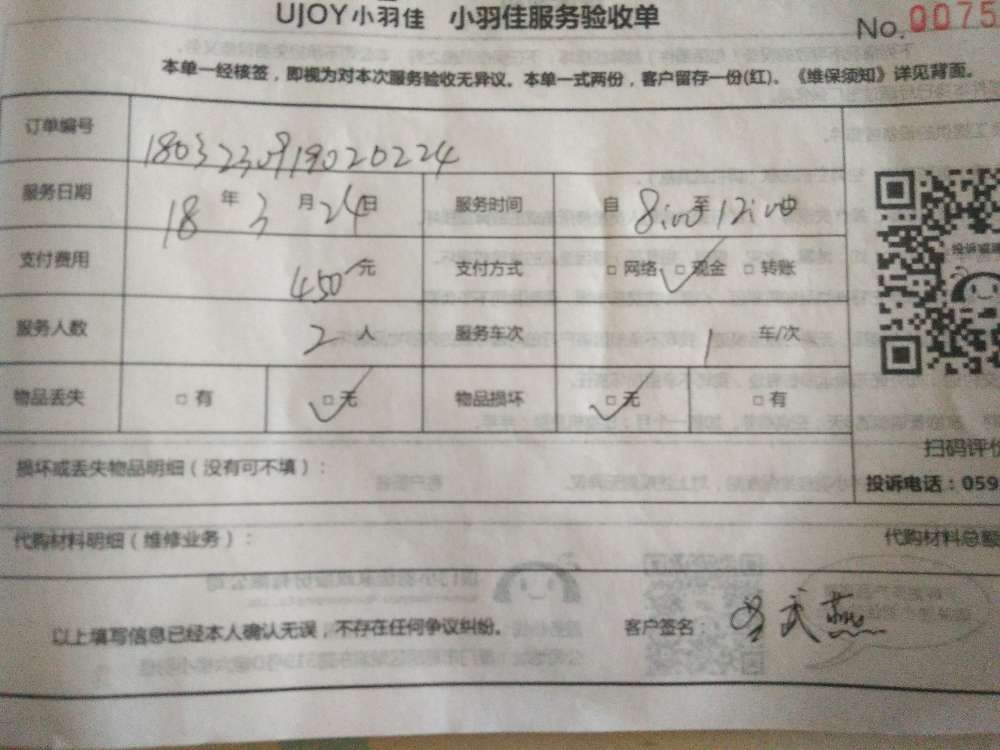 UJOY小羽佳 小羽佳服务验收单
No.0075
本单一经核签，即视为对本次服务验收无异议。本单一式两份，客户留存一份(红)。《维保须知》详见背面。
订单编号 180323091902022​4
服务日期 18 年 3 月 24 日 服务时间 自 8:00 至 12:00
支付费用 450 元 支付方式 □ 网络 □ 现金 □ 转账
服务人数 2 人 服务车次 1 车/次
物品丢失 □ 有 □ 无 物品损坏 □ 无 □ 有
投诉
扫码评价
损坏或丢失物品明细（没有可不填）：
投诉电话：059
代购材料明细（维修业务）：
代购材料总额
以上填写信息已经本人确认无误，不存在任何争议纠纷。 客户签名： 武燕